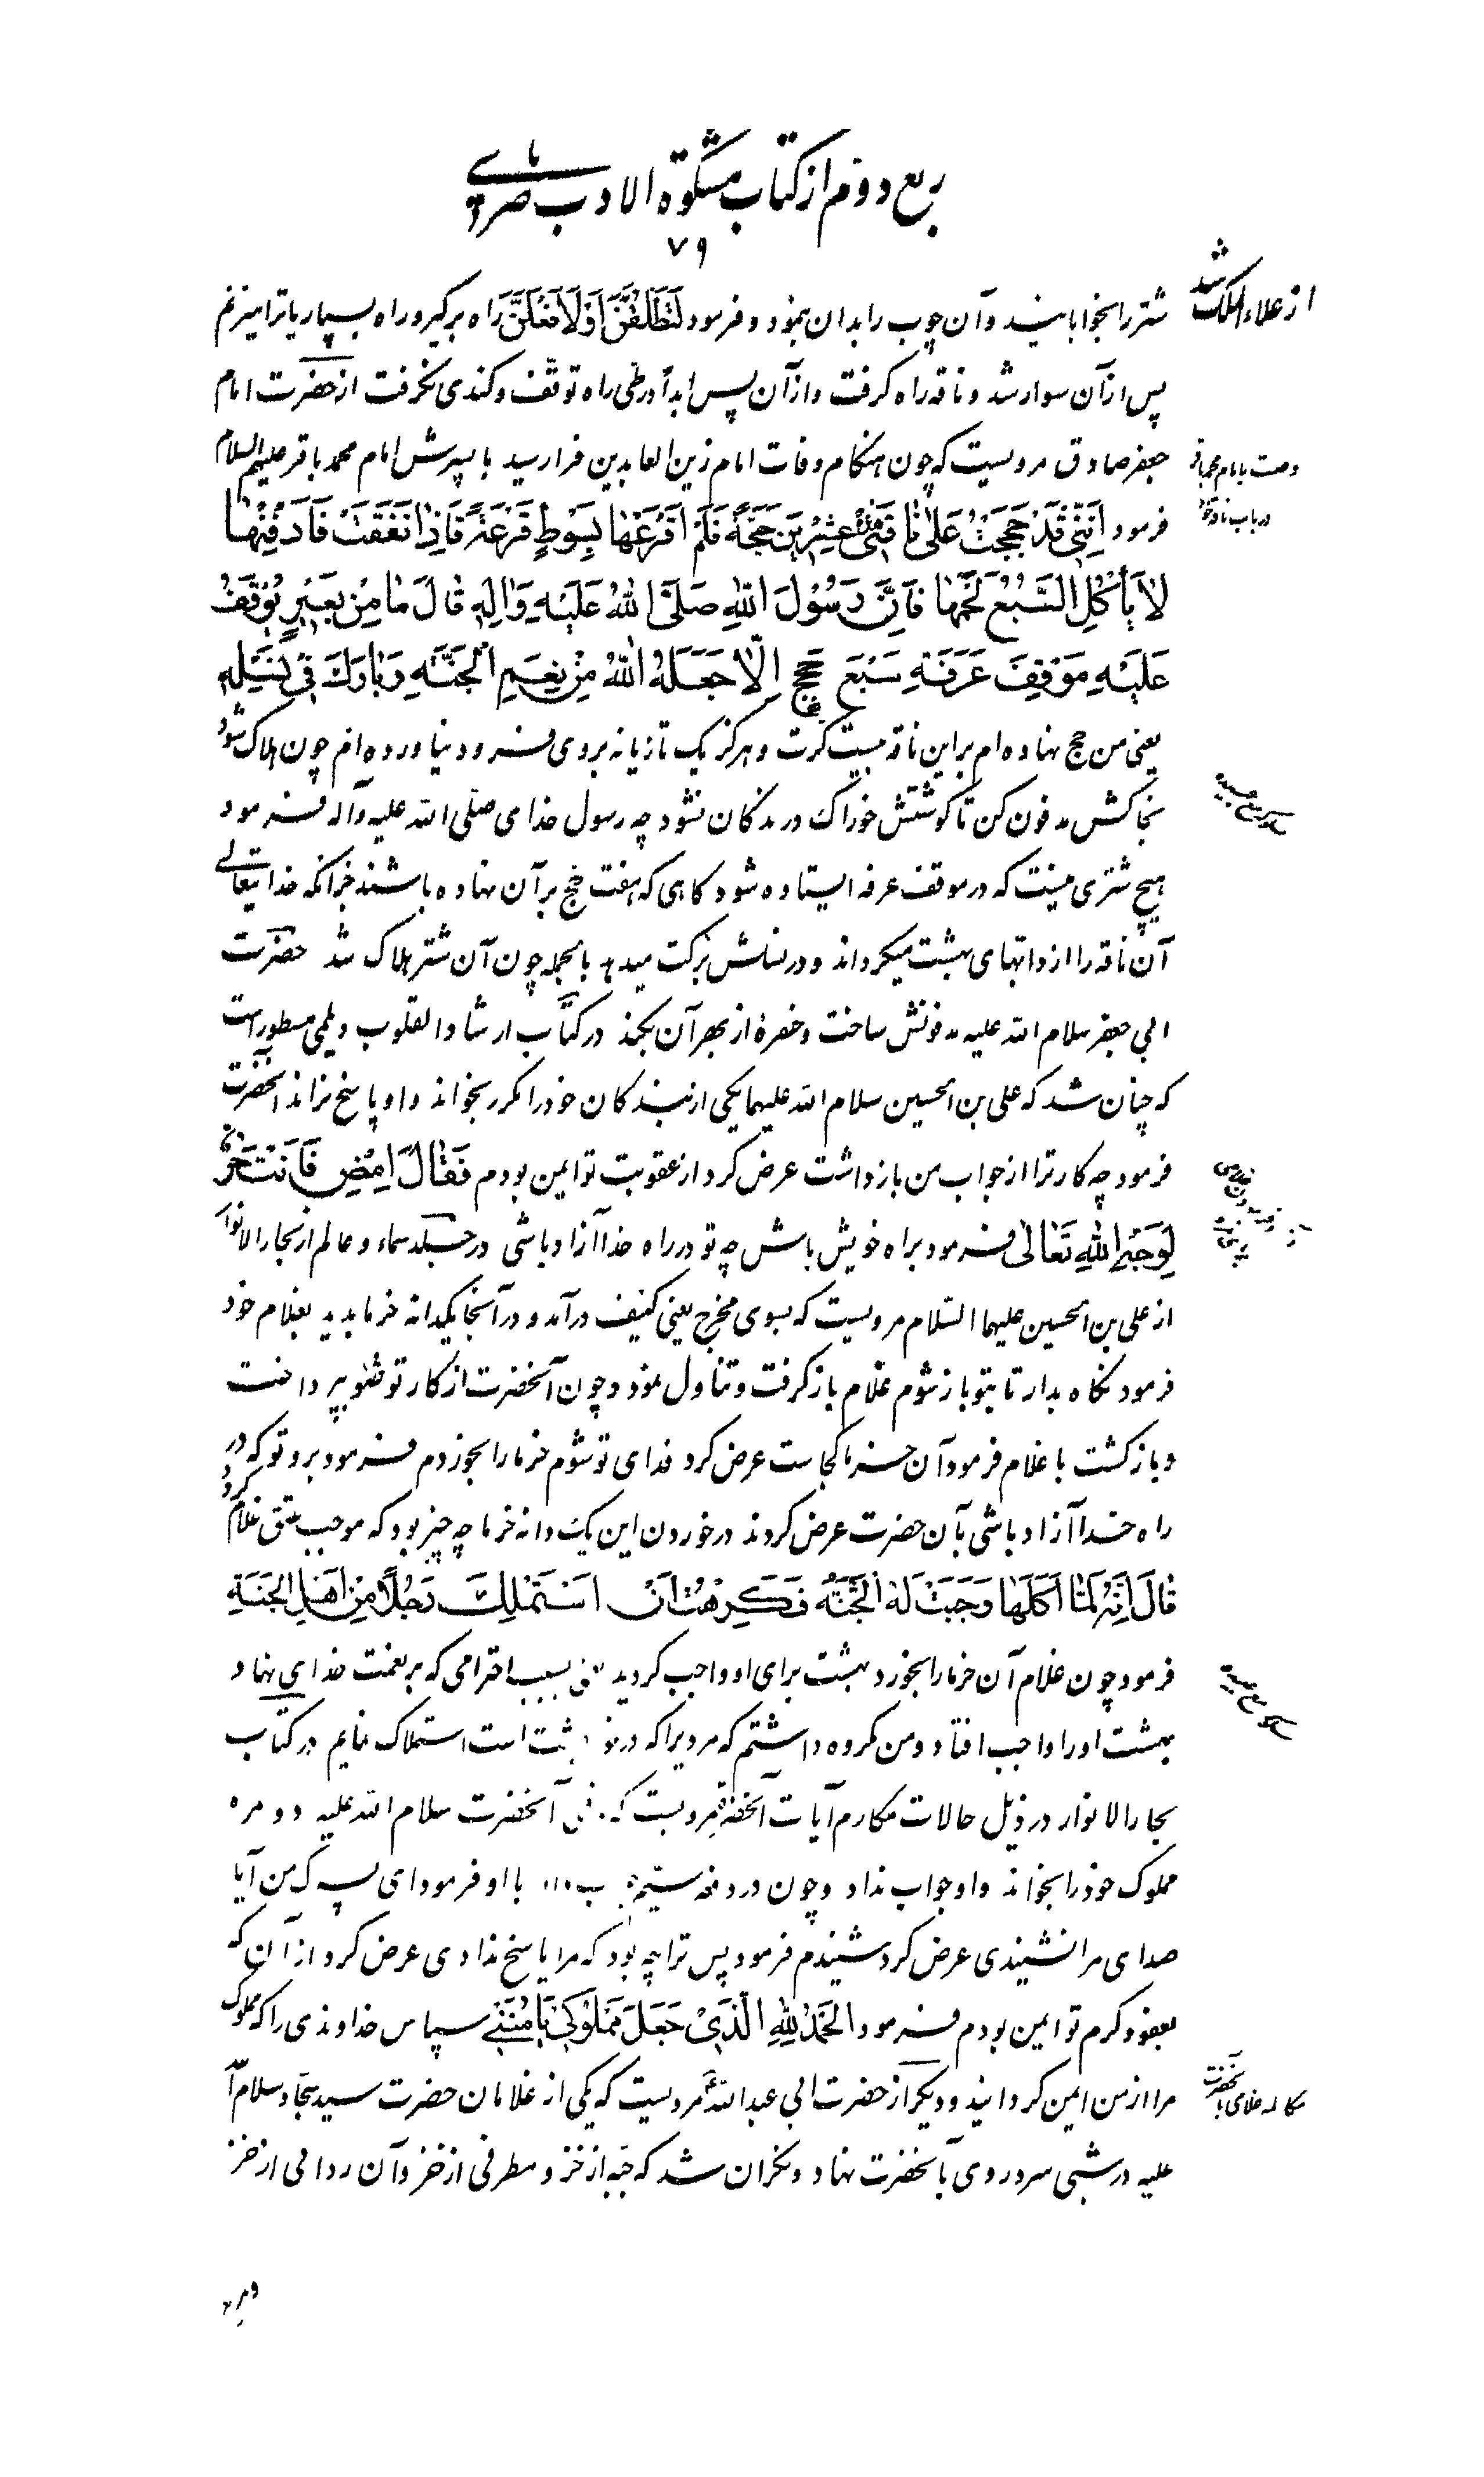 ربع دوّم از کتاب مشکوة الادب ناصری
۷۹
شتر را بخوابانید و آن چوب را بدان بنمود و فرمود لَتَنْطَلِقَنَّ اَوْ لَاَفْعَلَنَّ راه برگیر و راه بسپار یا ترا میزنم
پس از آن سوار شد و ناقه راه گرفت و از آن پس ابداً در طی راه توقّف و کندی نگرفت از حضرت امام
جعفر صادق مرویست که چون هنگام وفات امام زین العابدین فرا رسید با پسرش امام محمد باقر علیهم السلام
فرمود اِنَّنی قَدْ حَجَجْتُ عَلیٰ نٰاقَتی هٰذِهِ عِشْرینَ حَجَّةً فَلَمْ اَقْرَعْهٰا بِسَوْطٍ قَرْعَةً فَاِذٰا نَفَقَتْ فَادْفِنْهٰا
لاٰ یَأْکُلِ السَّبُعُ لَحْمَهٰا فَاِنَّ رَسُولَ اللهِ صَلَّی اللهُ عَلَیْهِ وَاٰلِهِ قٰالَ مٰا مِنْ بَعیرٍ یُوقَفُ
عَلَیْهِ مَوْقِفَ عَرَفَةِ سَبْعَ حِجَجٍ اِلّاٰ جَعَلَهُ اللهُ مِنْ نِعَمِ الْجَنَّةِ وَبٰارَكَ فی نَسْلِهِ
یعنی من حج نهاده ام بر این ناقه بیست کرت و هرگز یک تازیانه بروی فرود نیاورده ام چون هلاک شود
بخاکش مدفون کن تا گوشتش خوراک درندگان نشود چه رسول خدای صلّی الله علیه وآله فرمود
هیچ شتری نیست که در موقف عرفه ایستاده شود گاهی که هفت حج بر آن نهاده باشند جز آنکه خدایتعالی
آن ناقه را از دابتهای بهشت میگرداند و در نسلش برکت میدهد بالجمله چون آن شتر هلاک شد حضرت
ابی جعفر سلام الله علیه مدفونش ساخت و حفرهٔ از بهر آن بکند در کتاب ارشاد القلوب دیلمی مسطور است
که چنان شد که علی بن الحسین سلام الله علیهما یکی از بندگان خود را مکرر بخواند و او پاسخ نراند آنحضرت
فرمود چه کار ترا از جواب من بازداشت عرض کرد از عقوبت تو ایمن بودم فَقٰالَ اِمْضِ فَاَنْتَ حُرٌّ
لِوَجْهِ اللهِ تَعٰالیٰ فرمود براه خویش باش چه تو در راه خدا آزاد باشی در جلد سماء و عالم از بحار الانوار
از علی بن الحسین علیهما السّلام مرویست که بسوی مخرج یعنی کنیف درآمد و در آنجا یکدانه خرما بدید بغلام خود
فرمود نگاه بدار تا بتو باز شوم غلام باز گرفت و تناول نمود و چون آنحضرت از کار توضو بپرداخت
و بازگشت با غلام فرمود آن خرما کجاست عرض کرد فدای تو شوم خرما را بخوردم فرمود برو تو که در
راه خدا آزاد باشی بآن حضرت عرض کردند در خوردن این یک دانه خرما چه چیز بود که موجب عتق غلام گردد
قٰالَ اِنَّهُ لَمّٰا اَکَلَهٰا وَجَبَتْ لَهُ الْجَنَّةُ فَکَرِهْتُ اَنْ اَسْتَمْلِكَ رَجُلاً مِنْ اَهْلِ الْجَنَّةِ
فرمود چون غلام آن خرما را بخورد بهشت برای او واجب گردید یعنی بسبب احترامی که بر نعمت خدای نهاد
بهشت او را واجب افتاد و من مکروه داشتم که مردیرا که درخور بهشت است استملاک نمایم در کتاب
بحار الانوار در ذیل حالات مکارم آیات آنحضرت مرویست که آنحضرت سلام الله علیه دو مره
مملوک خود را بخواند و او جواب نداد و چون در دفعه سیّم با او فرمود ای پسرک من آیا
صدای مرا نشنیدی عرض کرد شنیدم فرمود پس ترا چه بود که مرا پاسخ ندادی عرض کرد از آن که
بعفو و کرم تو ایمن بودم فرمود الحَمْدُ لِلّهِ الَّذی جَعَلَ مَمْلُوکی یَأْمَنُنی سپاس خداوندی را که مملوک
مرا از من ایمن گردانید و دیگر از حضرت ابی عبد الله مرویست که یکی از غلامان حضرت سید سجّاد سلام الله
علیه در شبی سرد روی بآنحضرت نهاد و نگران شد که جبّه از خز و مطرفی از خز و آن ردائی از خز
از علاء الملک شد
وصیت با امام محمد باقر
در باب ناقه خود
مکالمه غلامی با آنحضرت